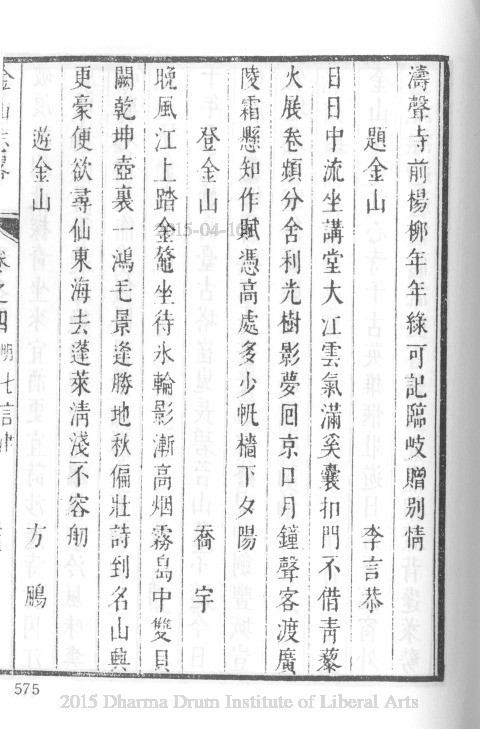 濤聲寺前楊柳年年綠可記臨岐贈別情
題金山 李言恭
日日中流坐講堂大江雲氣滿奚囊扣門不借青藜
火展卷頻分舍利光樹影夢囘京口月鐘聲客渡廣
陵霜懸知作賦憑高處多少帆檣下夕陽
登金山 喬宇
晚風江上踏金鼇坐待氷輪影漸高烟霧島中雙貝
闕乾坤壺裏一鴻毛景逢勝地秋偏壯詩到名山興
更豪便欲尋仙東海去蓬萊清淺不容舠
遊金山 方鵬
金山志畧 卷之四 明七言律
575
2015 Dharma Drum Institute of Liberal Arts